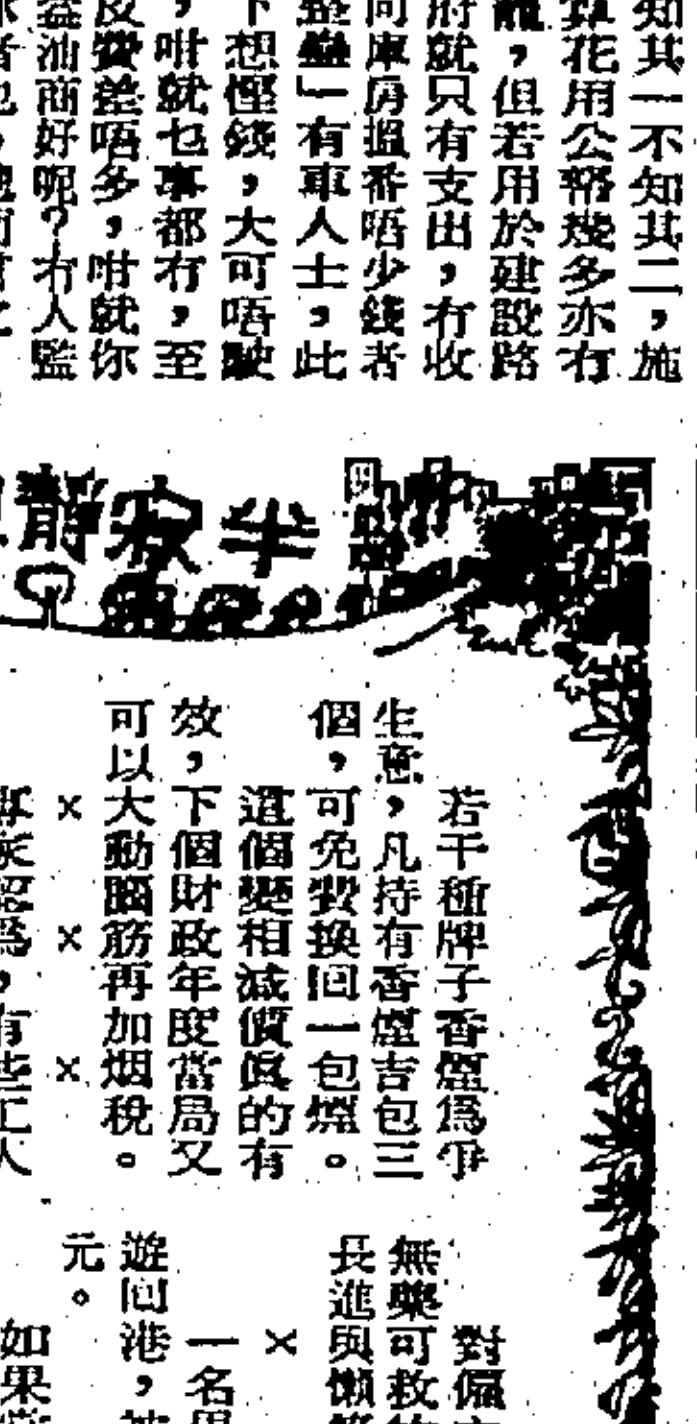 知其一不知其二，施
算花用公帑幾多亦冇
，但若用於建設路
府就只有支出，冇收
向庫房搵番唔少錢者
」有車人士，此
下想慳錢，大可唔駛
，咁就乜事都冇，至
費差唔多，咁就你
益油商好呢？冇人監
半寂靜
若干種牌子香煙為爭
生意，凡持有香煙吉包三
個，可免費換回一包煙。
這個變相減價真的有
效，下個財政年度當局又
可以大動腦筋再加烟稅。
× × ×
專家認爲，有些工人
對偏
無藥可救
長進與懶
×
一名男
遊回港，被
元。
如果